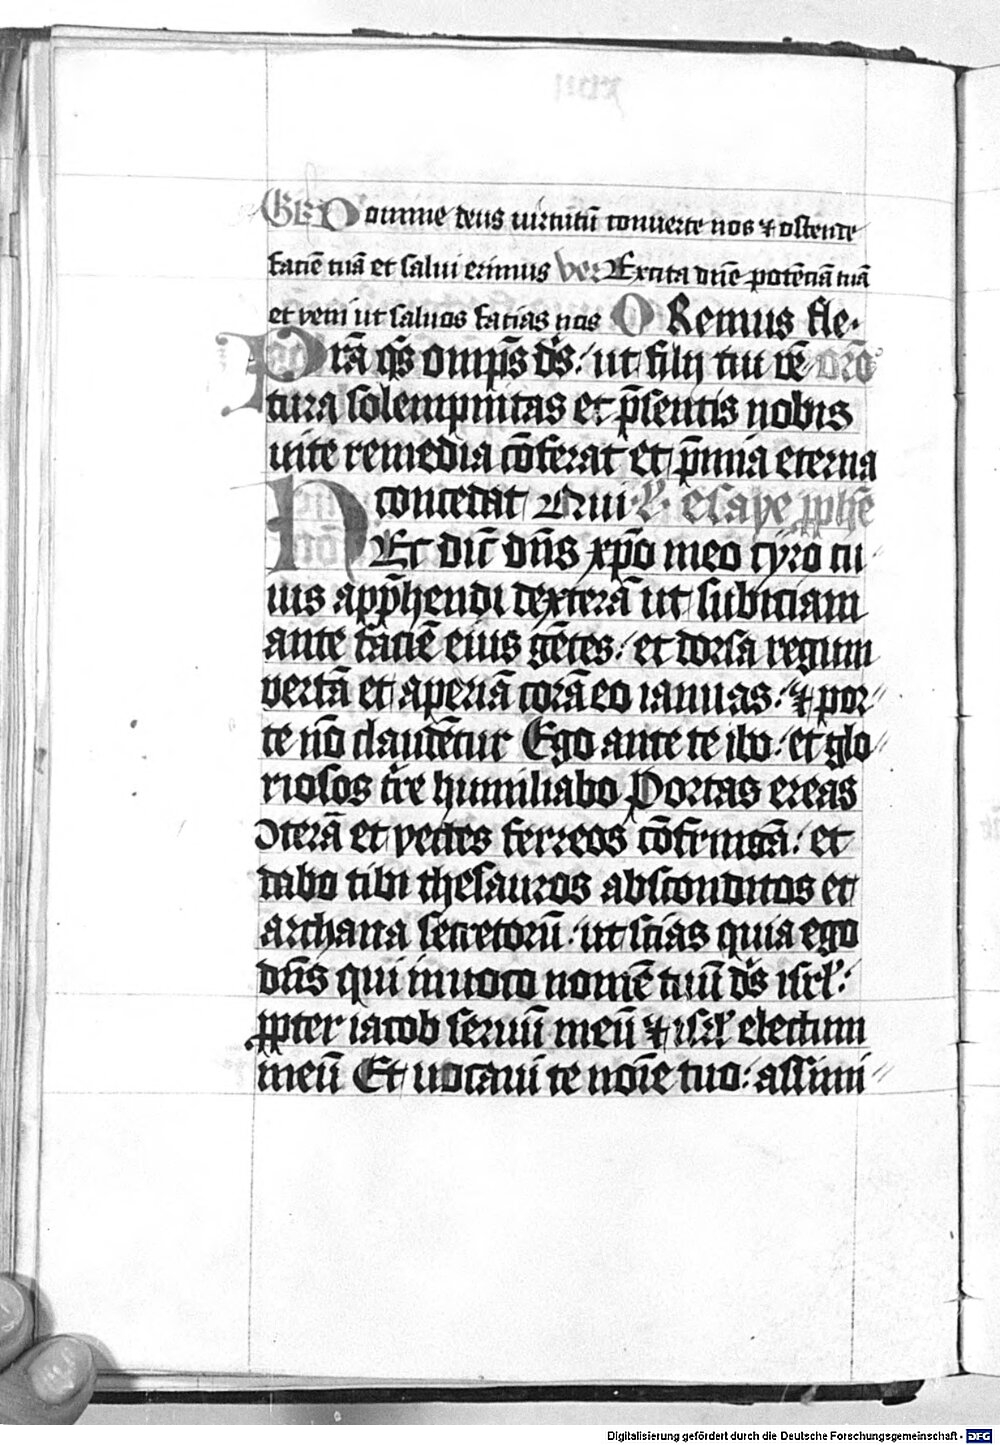 GR Domine deus uirtutū conuerte nos ⁊ ostende
faciē tuā et salui erimus ver Excita dn̄e potēciā tuā
et veni ut saluos facias nos O Remus fle.
Prā qs̄ omp̄s ds̄: ut filij tui vē orō
tura solempnitas et p̄sentis nobis
uite remedia cōferat et p̄mia eterna
concedat Qui L esaye pphē
Hec dic̄ dn̄s xp̄o meo cyro cu
ius app̄hendi dexterā ut subiciam
ante faciē eius gētes: et dorsa regum
vertā et aperiā corā eo ianuas: ⁊ por
te nō claudētur Ego ante te ibo: et glo
riosos tr̄e humiliabo Portas ereas
ↄterā et vectes ferreos cōfringā: et
dabo tibi thesauros absconditos et
archana secretorū: ut scias quia ego
dn̄s qui inuoco nomē tuū ds̄ isrl̄:
ppter iacob seruū meū ⁊ isrl̄ electum
meū Et uocaui te noīe tuo: assimi
Digitalisierung gefördert durch die Deutsche Forschungsgemeinschaft - DFG